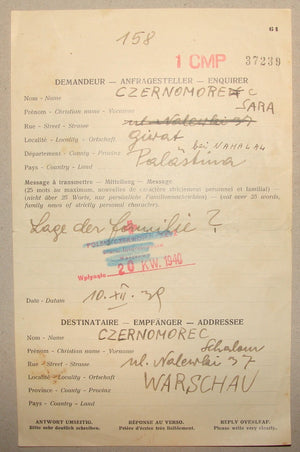 61
158
1 CMP 37239
DEMANDEUR — ANFRAGESTELLER — ENQUIRER
Nom - Name CZERNOMOREC
Prénom - Christian name - Vorname SARA
Rue - Street - Strasse ul. Nalewki 37
Localité - Locality - Ortschaft Giwat bei NAHALAL
Département - County - Provinz
Pays - Country - Land Palästina
Message à transmettre — Mitteilung — Message
(25 mots au maximum, nouvelles de caractère strictement personnel et familial) —
(nicht über 25 Worte, nur persönliche Familiennachrichten) — (not over 25 words,
family news of strictly personal character).
Lage der Familie?
Wpłynęło 20 KW. 1940
Date - Datum 10. XII. 39
DESTINATAIRE — EMPFÄNGER — ADDRESSEE
Nom - Name CZERNOMOREC
Prénom - Christian name - Vorname Schalom
Rue - Street - Strasse ul. Nalewki 37
Localité - Locality - Ortschaft
Province - County - Provinz WARSCHAU
Pays - Country - Land
ANTWORT UMSEITIG. RÉPONSE AU VERSO. REPLY OVERLEAF.
Bitte sehr deutlich schreiben. Prière d'écrire très lisiblement. Please write very clearly.